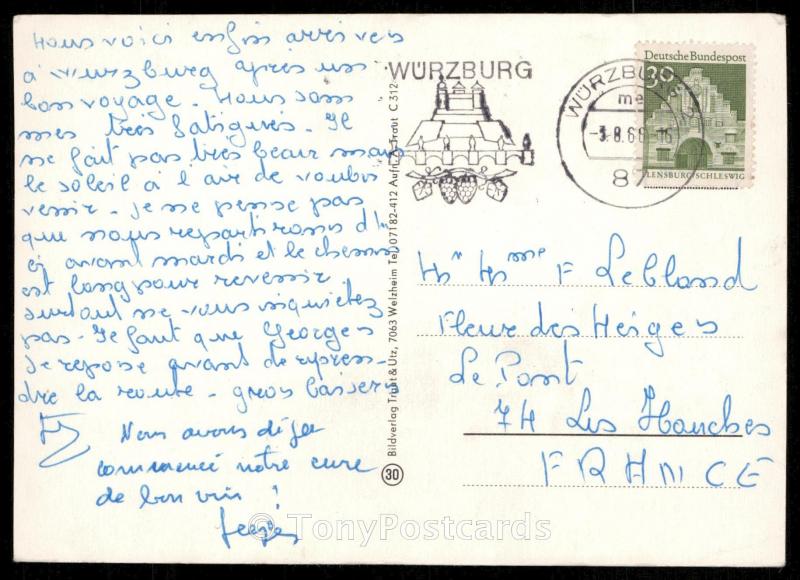 Nous voici enfin arrivés
à Wurzburg après un
bon voyage. Nous som
mes très fatigués. Il
ne fait pas très beau mais
le soleil à l'air de vouloir
venir. Je ne pense pas
que nous repartirons d'i
ci avant mardi et le chemin
est long pour revenir
surtout ne vous inquiétez
pas. Il faut que Georges
se repose avant de repren-
dre la route. gros baisers
Nous avons déjà
commencé notre cure
de bon vin !
WÜRZBURG
WÜRZBURG
-3.8.6
87
Deutsche Bundespost
30
FLENSBURG/SCHLESWIG
Mr Mme F Lebland
Fleur des Neiges
Le Pont
74 Les Houches
FRANCE
Bildverlag Truht & Utz, 7063 Welzheim Tel. 07182-412 Aufn. Traut C 512
30
© TonyPostcards